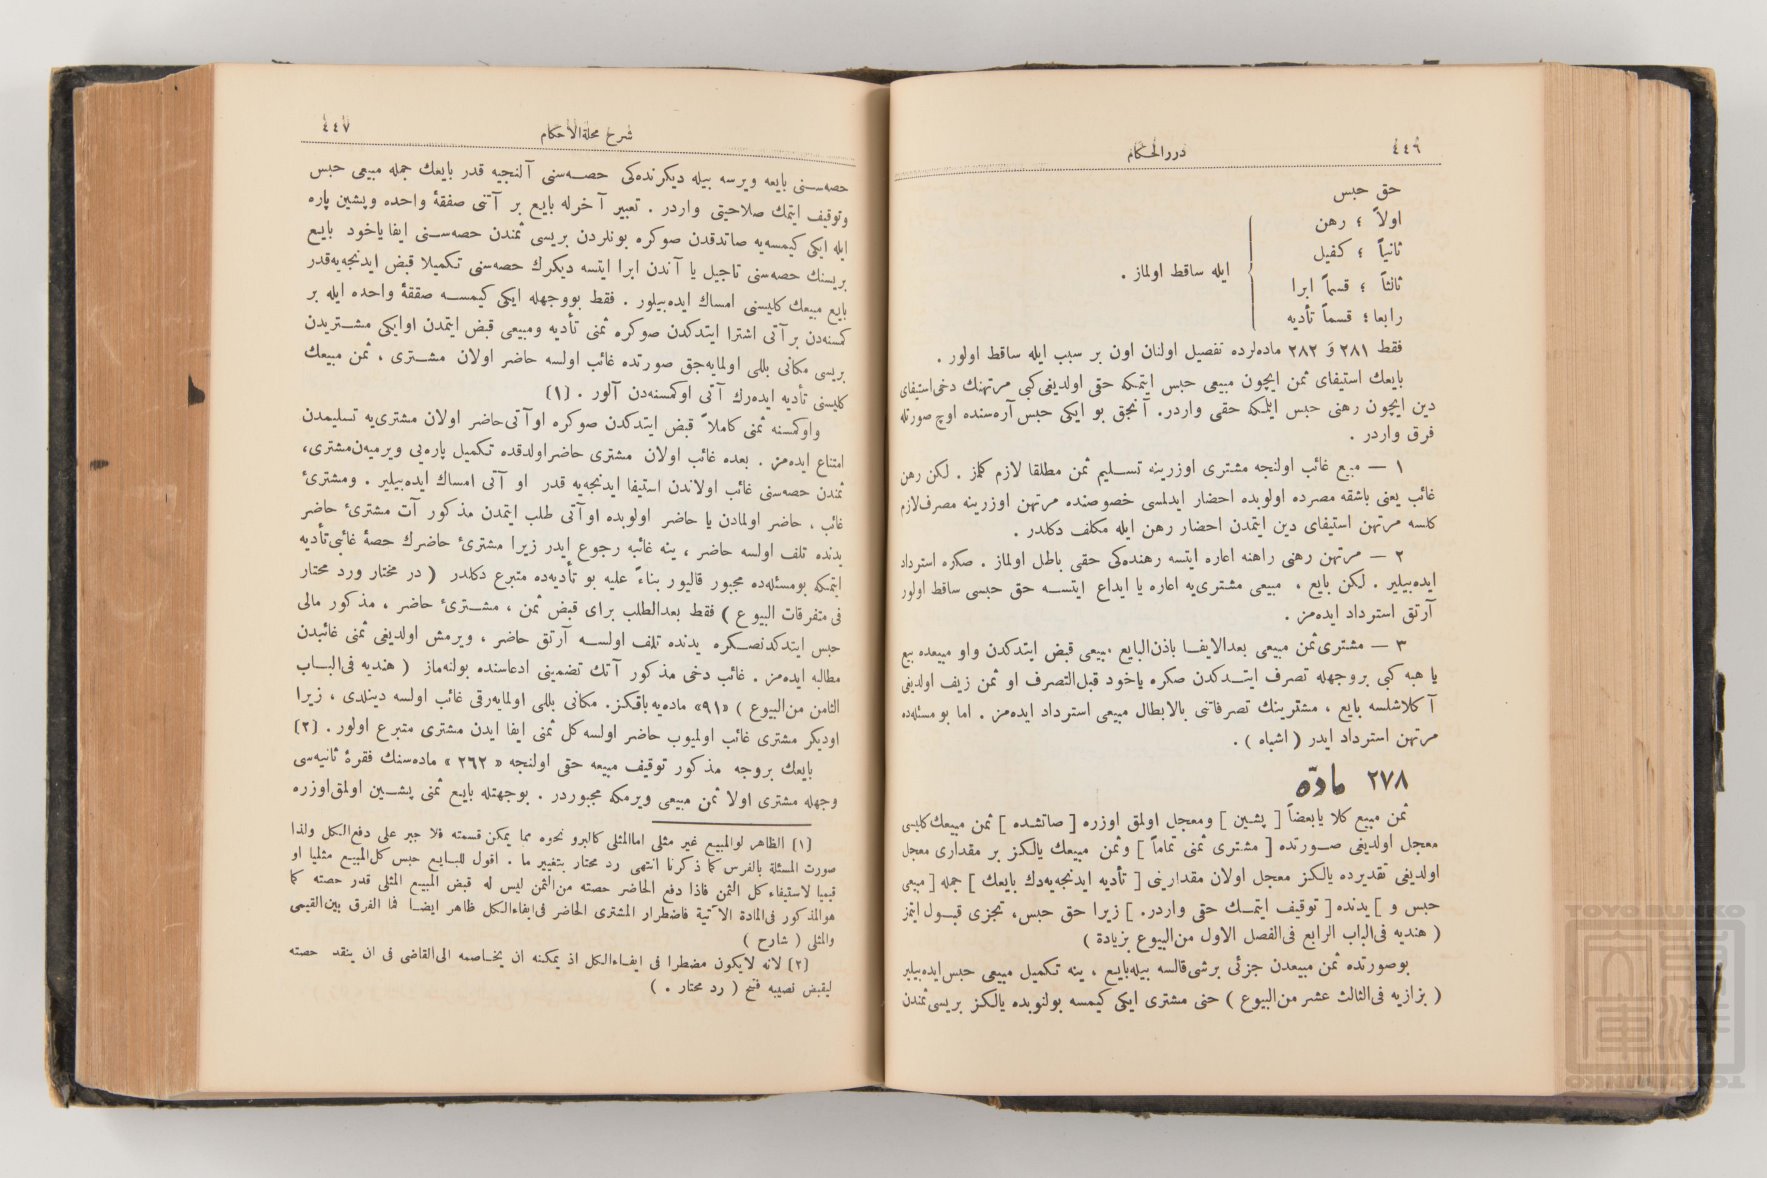 ٤٤٦
دررالحكام
حق حبس
اولاً ؛ رهن
ثانياً ؛ كفيل
ثالثاً ؛ قسماً ابرا
رابعا ؛ قسماً تأديه
ايله ساقط اولماز .
فقط ٢٨١ وَ ٢٨٢ ماده‌لرده تفصيل اولنان اون بر سبب ايله ساقط اولور .
بايعك استيفاى ثمن ايچون مبيعى حبس ايتمكه حقى اولديغى كبى مرتهنك دخى استيفاى
دين ايچون رهنى حبس ايلمكه حقى واردر. آنجق بو ايكى حبس آره‌سنده اوچ صورتله
فرق واردر .
١ — مبيع غائب اولنجه مشترى اوزرينه تسليم ثمن مطلقا لازم كلمز . لكن رهن
غائب يعنى باشقه مصرده اولوبده احضار ايدلمسى خصوصنده مرتهن اوزرينه مصرف لازم
كلسه مرتهن استيفاى دين ايتمدن احضار رهن ايله مكلف دكلدر .
٢ — مرتهن رهنى راهنه اعاره ايتسه رهنده‌كى حقى باطل اولماز . صكره استرداد
ايده‌بيلير . لكن بايع ، مبيعى مشترى‌يه اعاره يا ايداع ايتسه حق حبسى ساقط اولور
آرتق استرداد ايده‌مز .
٣ — مشترى ثمن مبيعى بعدالايفا باذن‌البايع مبيعى قبض ايتدكدن واو مبيعده بيع
يا هبه كبى بروجهله تصرف ايتدكدن صكره ياخود قبل‌التصرف او ثمن زيف اولديغى
آكلاشلسه بايع ، مشترينك تصرفاتنى بالابطال مبيعى استرداد ايده‌مز . اما بو مسئله‌ده
مرتهن استرداد ايدر ( اشباه ) .
٢٧٨ مادّه
ثمن مبيع كلا يابعضاً [ پشين ] ومعجل اولمق اوزره [ صاتشده ] ثمن مبيعك كليسى
معجل اولديغى صورتده [ مشترى ثمنى تماماً ] وثمن مبيعك يالكز بر مقدارى معجل
اولديغى تقديرده يالكز معجل اولان مقدارينى [ تأديه ايدنجه‌يه‌دك بايعك ] جمله [ مبيعى
حبس و ] يدنده [ توقيف ايتمك حقى واردر. ] زيرا حق حبس، تجزى قبول ايتمز
( هنديه فى‌الباب الرابع فى‌الفصل الاول من‌البيوع بزيادة )
بوصورتده ثمن مبيعدن جزئى برشى قالسه بيله بايع ، ينه تكميل مبيعى حبس ايده‌بيلير
( بزازيه فى‌الثالث عشر من‌البيوع ) حتى مشترى ايكى كيمسه بولنوبده يالكز بريسى ثمندن
٤٤٧
شرح مجلةالاحكام
حصه‌سنى بايعه ويرسه بيله ديكرنده‌كى حصه‌سنى آلنجيه قدر بايعك جمله مبيعى حبس
وتوقيف ايتمك صلاحيتى واردر . تعبير آخرله بايع بر آتنى صفقهٔ واحده وپشين پاره
ايله ايكى كيمسه‌يه صاتدقدن صوكره بونلردن بريسى ثمندن حصه‌سنى ايفا ياخود بايع
بريسنك حصه‌سنى تاجيل يا آندن ابرا ايتسه ديكرك حصه‌سنى تكميلا قبض ايدنجه‌يه‌قدر
بايع مبيعك كليسنى امساك ايده‌بيلور . فقط بووجهله ايكى كيمسه صفقهٔ واحده ايله بر
كمسنه‌دن برآتى اشترا ايتدكدن صوكره ثمنى تأديه ومبيعى قبض ايتمدن اوايكى مشتريدن
بريسى مكانى بللى اولمايه‌جق صورتده غائب اولسه حاضر اولان مشترى ، ثمن مبيعك
كليسنى تأديه ايده‌رك آتى اوكمسنه‌دن آلور . (١)
واوكمسنه ثمنى كاملاً قبض ايتدكدن صوكره اوآتى حاضر اولان مشترى‌يه تسليمدن
امتناع ايده‌مز . بعده غائب اولان مشترى حاضراولدقده تكميل پاره‌يى ويرميه‌ن‌مشترى،
ثمندن حصه‌سنى غائب اولاندن استيفا ايدنجه‌يه قدر او آتى امساك ايده‌بيلير . ومشترئ
غائب ، حاضر اولمادن يا حاضر اولوبده اوآتى طلب ايتمدن مذكور آت مشترئ حاضر
يدنده تلف اولسه حاضر ، ينه غائبه رجوع ايدر زيرا مشترئ حاضرك حصهٔ غائبى تأديه
ايتمكه بومسئله‌ده مجبور قاليور بناءً عليه بو تأديه‌ده متبرع دكلدر ( در مختار ورد محتار
فى متفرقات البيوع ) فقط بعدالطلب براى قبض ثمن ، مشترئ حاضر ، مذكور مالى
حبس ايتدكدنصكره يدنده تلف اولسه آرتق حاضر ، ويرمش اولديغى ثمنى غائبدن
مطالبه ايده‌مز . غائب دخى مذكور آتك تضمينى ادعاسنده بولنه‌ماز ( هنديه فى‌الباب
الثامن من‌البيوع ) «٩١» ماده‌يه باقكز. مكانى بللى اولمايه‌رق غائب اولسه دينلدى ، زيرا
اوديكر مشترى غائب اولميوب حاضر اولسه كل ثمنى ايفا ايدن مشترى متبرع اولور . (٢)
بايعك بروجه مذكور توقيف مبيعه حقى اولنجه « ٢٦٢ » ماده‌سنك فقرهٔ ثانيه‌سى
وجهله مشترى اولا ثمن مبيعى ويرمكه مجبوردر . بوجهتله بايع ثمنى پشين اولمق‌اوزره
(١) الظاهر لوالمبيع غير مثلى اماالمثلى كالبرو نحوه مما يمكن قسمته فلا جبر على دفع‌الكل ولذا
صورت المسئلة بالفرس كما ذكرنا انتهى رد محتار بتغيير ما . اقول للبايع حبس كل‌المبيع مثليا او
قيميا لاستيفاء كل الثمن فاذا دفع الحاضر حصته من‌الثمن ليس له قبض المبيع المثلى قدر حصته كما
هوالمذكور فى‌المادة الآتية فاضطرار المشترى الحاضر فى‌ايفاءالكل ظاهر ايضا فما الفرق بين‌القيمى
والمثلى ( شارح )
(٢) لانه لايكون مضطرا فى ايفاءالكل اذ يمكنه ان يخاصمه الى‌القاضى فى ان ينقد حصته
ليقبض نصيبه فتح ( رد محتار . )
TOYO BUNKO